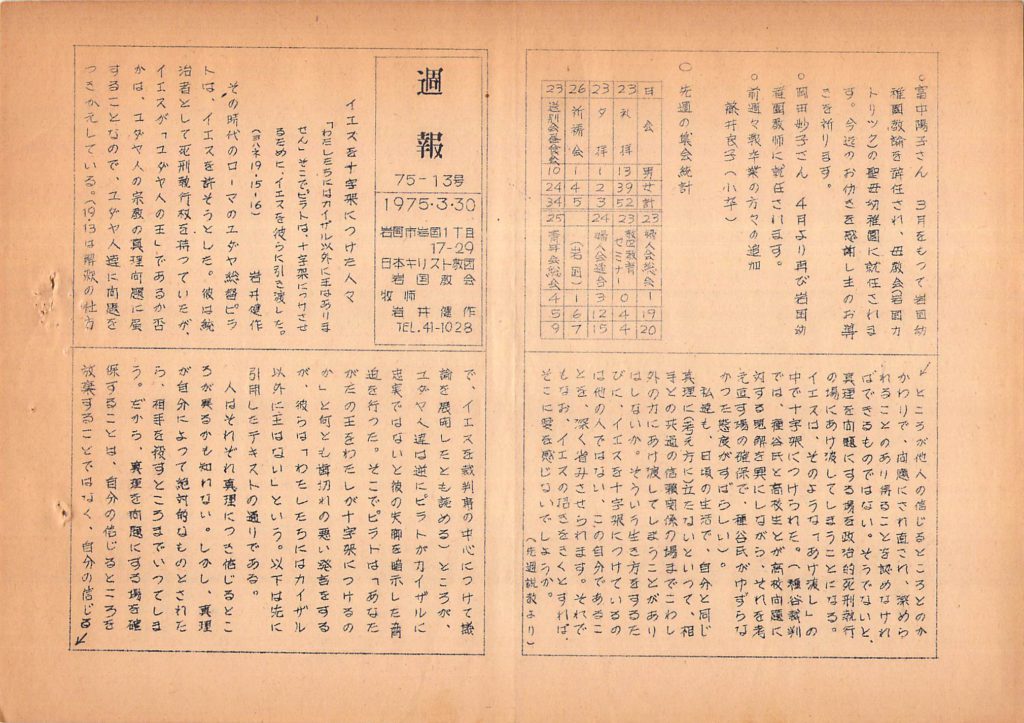 週報
75-13号
1975・3・30
岩国市岩国1丁目
17-29
日本キリスト教団
岩国教会
牧師
岩井健作
TEL.41-1028
イエスを十字架につけた人々
「わたしたちにはカイザル以外に王はありま
せん」そこでピラトは、十字架につけさせ
るために、イエスを彼らに引き渡した。
(ヨハネ19・15-16)
岩井健作
その時代のローマのユダヤ総督ピラ
トは、イエスを許そうとした。彼は統
治者として死刑執行权を持っていたが、
イエスが「ユダヤ人の王」であるか否
かは、ユダヤ人の宗教の真理向題に属
することなので、ユダヤ人達に向題を
つきかえしている。(19・13は解釈の仕方
で、イエスを裁判席の中心につけて議
論を展開したとも読める)ところが、
ユダヤ人達は逆にピラトがカイザルに
忠実ではないと彼の失脚を暗示した脅
迫を行った。そこでピラトは「あなた
がたの王をわたしが十字架につけるの
か」と何とも歯切れの悪い発言をする
が、彼らは「わたしたちにはカイザル
以外に王はない」という。以下は先に
引用したテキストの通りである。
人はそれぞれ真理につき信じるとこ
ろが異るかも知れない。しかし、真理
が自分によって絶対的なものとされた
ら、相手を殺すところまでいってしま
う。だから、真理を向題にする場を確
保することは、自分の信じるところを
放棄することではなく、自分の信じる
ところが他人の信じるところとのか
かわりで、向題にされ直され、深めら
れることのあり得ることを認めなけれ
ばできるものではない。そうでないと、
真理を向題にする場を政治的死刑執行
の場にあけ渡してしまうことになる。
イエスは、そのような「あけ渡し」の
中で十字架につけられた。(種谷裁判
では、種谷氏と高校生とが高校向題に
対する見解を異にしながら、それを考
え直す場の確保で、種谷氏がゆずらな
かった態度がすばらしい)
私達も、日頃の生活で、自分と同じ
真理に(考え方に)立たないといって、相
手との共通の信頼関係の場までこわし
外の力にあけ渡してしまうことがあり
はしないか。そういう生き方をするた
びに、イエスを十字架につけているの
は他の人ではない、この自分であるこ
とを、深く省みさせられます。それで
もなお、イエスの招きをきくとすれば、
そこに愛を感じないでしょうか。
(先週説教より)
○畠中陽子さん 3月をもって岩国幼
稚園教諭を辞任され、母教会(岩国カ
トリック)の聖母幼稚園に就任されま
す。今迄のお仂きを感謝し主のお導
きを祈ります。
○岡田妙子さん 4月より再び岩国幼
稚園教師に就任されます。
○前週々報卒業の方々の追加
藤井良子(小卒)
○先週の集会統計
日 会 男 女 計
23 礼拝 13 39 52
23 夕拝 1 2 3
26 祈祷会 1 4 5
23 送別会昼食会 10 24 34
23 婦人会総会 1 19 20
23 教会教育セミナー 0 4 4
24 婦人会連合 3 12 15
(岩国) 1 6 7
25 青年会総会 4 5 9